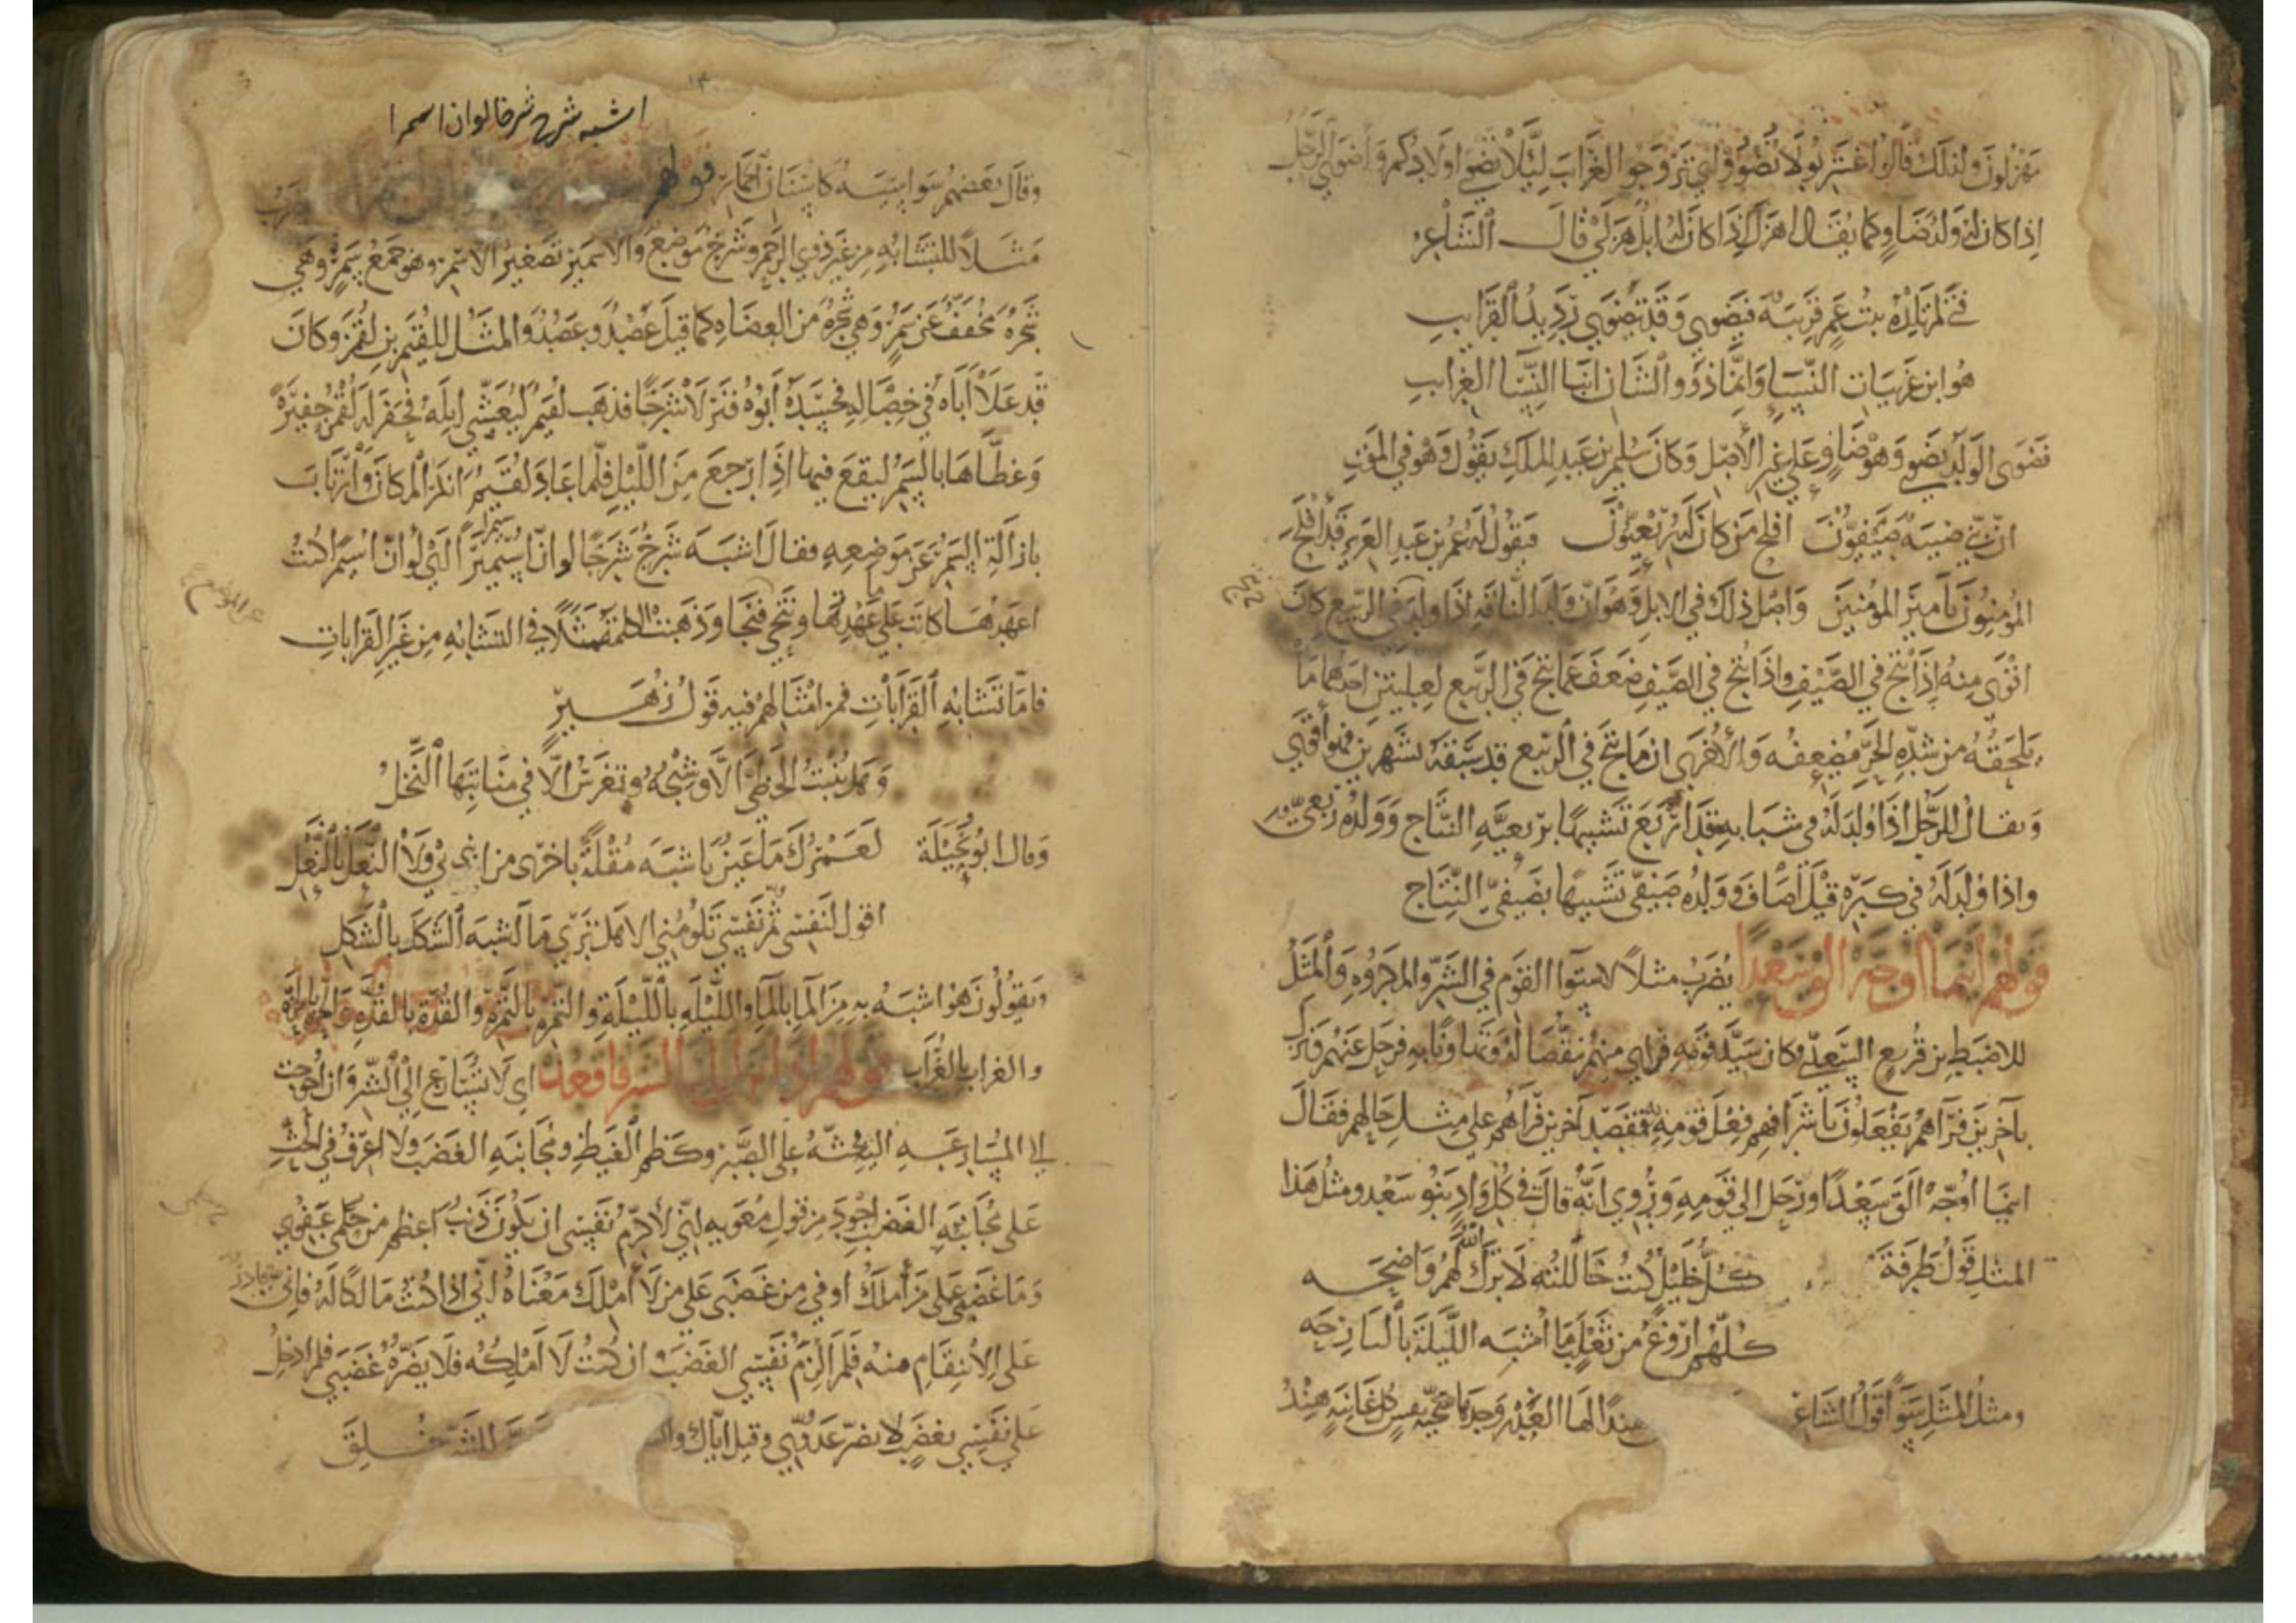 مهزلون ولذلك قالوا اغتربوا لا تضووا اي تزوجوا الغرايب ليلا تضوي اولادكم واضوي الرجل
اذا كان له ولد ضاو كما يقال اهزل اذا كان له ابل هزلي قال الشاعر
فتي لم تلده بنت عم قريبة فيضوي وقد يضوي رديد القرايب
هو ابن غريبات النسا وانما ذوو الشان ابنا النسا الغرايب
تضوي الولد يضوي وهو ضاو علي غير الاصل وكان سليمن بن عبد الملك يقول وهو في الموت
ان بني صبية صيفيون افلح من كان له ربعيون فيقول له عمر بن عبد العزيز قد افلح
المؤمنون يا امير المؤمنين واصل ذلك في الابل وهو ان ولد الناقة اذا ولد في الربيع كان
اقوى منه اذا نتج في الصيف واذا نتج في الصيف ضعف عما نتج في الربيع لعلتين احدهما ما
يلحقه من شدة الحر مضعفه والاخرى ان ما نتج في الربيع قد سبقه بشهرين فهو اقوي
ويقال للرجل اذا ولد له في شبابه قد اربع تشبيها بربعية النتاج وولده ربعي
واذا ولد له في كبره قيل اصاف وولده صيفي تشبيها بصيفي النتاج
قولهم اينما اوجه الق سعدا يضرب مثلا لاستوا القوم في الشر والمكروه والمثل
للاضبط بن قريع السعدي وكان سيد قومه فراي منهم تنقصا له وتهاونا به فرحل عنهم ونزل
بآخرين فرآهم يفعلون باشرافهم فعل قومه به فقصد آخرين فرآهم علي مثل حالهم فقال
اينما اوجه الق سعدا ورحل الي قومه وروي انه قال في كل واد بنو سعد ومثل هذا
المثل قول طرفة كل خليل كنت خاللته لا ترك الله لهم واضحه
كلهم اروغ من ثعلب ما اشبه الليلة بالبارحه
ومثل المثل سوا قول الشاعر هندا لها الغدر وحدها سجية نفس كل غانية هند
اشبه شرج شرجا لو ان اسمرا
وقال بعضهم سواسية كاسنان الحمار قولهم يضرب
مثلا للتشابه من غير ذوي الرحم وشرج موضع والاسيمر تصغير الاسمر وهو جمع سمر وهي
شجرة مخفف عن سمر وهي شجرة من العضاه كما قيل عضد وعضد والمثل للقيم بن لقمن وكان
قد علا اباه في خصاله فحسده ابوه فنزلا شرجا فذهب لقيم ليعشي ابله فحفر له لقمن حفيرة
وغطاها بالسمر ليقع فيها اذا رجع من الليل فلما عاد لقيم انكر المكان وارتاب
بازالة السمر عن موضعه فقال اشبه شرج شرجا لو ان اسيمرا اي لو ان اسمرا كنت
اعهدها كانت علي عهدتها ونتحي فنجا وذهبت الكلمة مثلا في التشابه من غير القرابات
فاما تشابه القرابات فمن امثالهم فيه قول زهير
وهل ينبت الخطي الا وشيجه وتغرس الا في منابتها النخل
وقال ابو نخيلة لعمرك ما عين باشبه مقلة باخرى من ابني بي ولا النعل بالنعل
اقول لنفسي ثم نفسي تلومني الا هل تري ما اشبه الشكل بالشكل
ويقولون هو اشبه به من الما بالما والليلة بالليلة والتمرة بالتمرة والقذة بالقذة
والغراب بالغراب قولهم اذا الشر فاقعد اي لا تتسارع الي الشر وان احوجت
الي المسارعة اليه يحثه علي الصبر وكظم الغيظ ومجانبة الغضب ولا اعرف في الحث
علي مجانبة الغضب اجود من قول معوية اني لا كرم نفسي ان يكون ذنب اعظم من حلمي عفوي
وما غضبي علي من املك اوفي من غضبي علي من لا املك معناه اني اذا كنت مالكا له فاني قادر
علي الانتقام منه فلم الزم نفسي الغضب وان كنت لا املكه فلا يضره غضبي فلم ادخل
علي نفسي بغضب لا يضر عدوي وقيل اياك للشر خلق